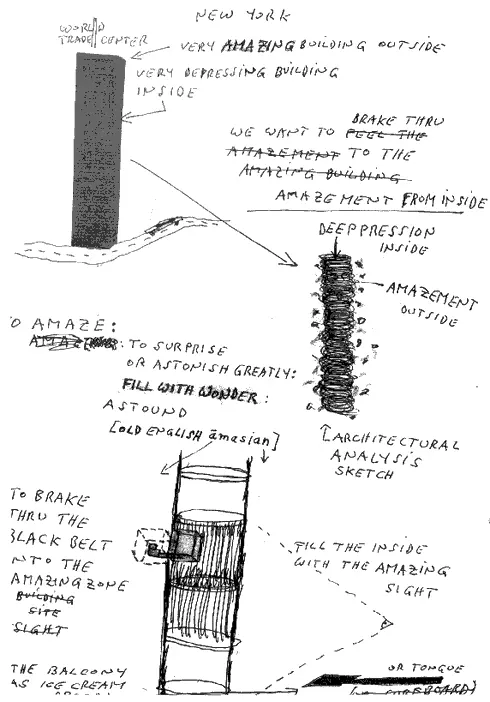 NEW YORK
WORLD TRADE CENTER
VERY AMAZING BUILDING OUTSIDE
VERY DEPRESSING BUILDING
INSIDE
BRAKE THRU
WE WANT TO FEEL THE
AMAZEMENT TO THE
AMAZING BUILDING
AMAZEMENT FROM INSIDE
DEEPPRESSION
INSIDE
AMAZEMENT
OUTSIDE
O AMAZE:
: TO SURPRISE
OR ASTONISH GREATLY:
FILL WITH WONDER:
ASTOUND
[OLD ENGLISH āmasian]
ARCHITECTURAL
ANALYSIS
SKETCH
TO BRAKE
THRU THE
BLACK BELT
NTO THE
AMAZING ZONE
BUILDING
SITE
SIGHT
FILL THE INSIDE
WITH THE AMAZING
SIGHT
THE BALCONY
AS ICE CREAM
OR TONGUE